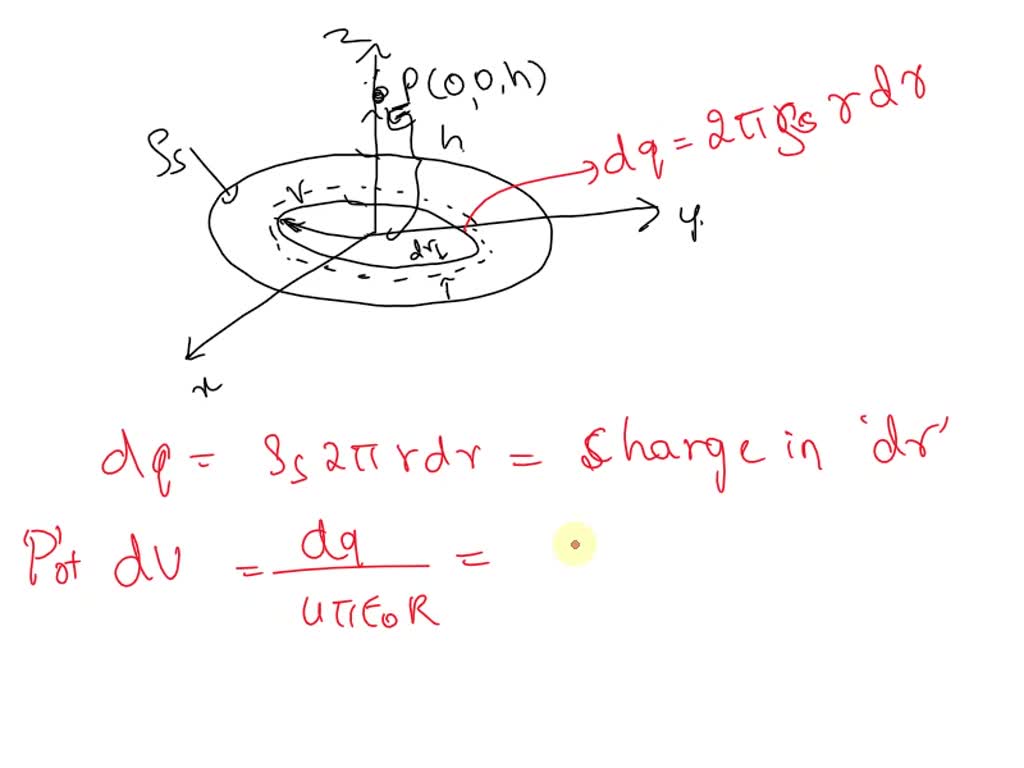 z
P(0,0,h)
h
ρs
dq = 2π ρs r dr
r
y
dr
x
dq = ρs 2π r dr = Charge in 'dr'
'P' ot dV = dq / 4π ε0 R =